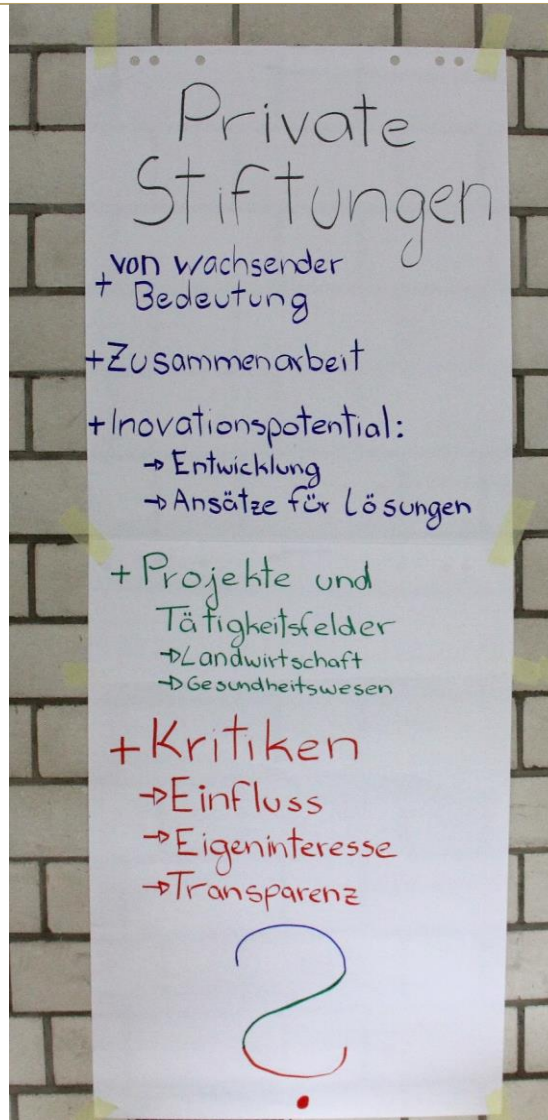 Private
Stiftungen
+ von wachsender
Bedeutung
+ Zusammenarbeit
+ Inovationspotential:
→ Entwicklung
→ Ansätze für Lösungen
+ Projekte und
Tätigkeitsfelder
→ Landwirtschaft
→ Gesundheitswesen
+ Kritiken
→ Einfluss
→ Eigeninteresse
→ Transparenz
?